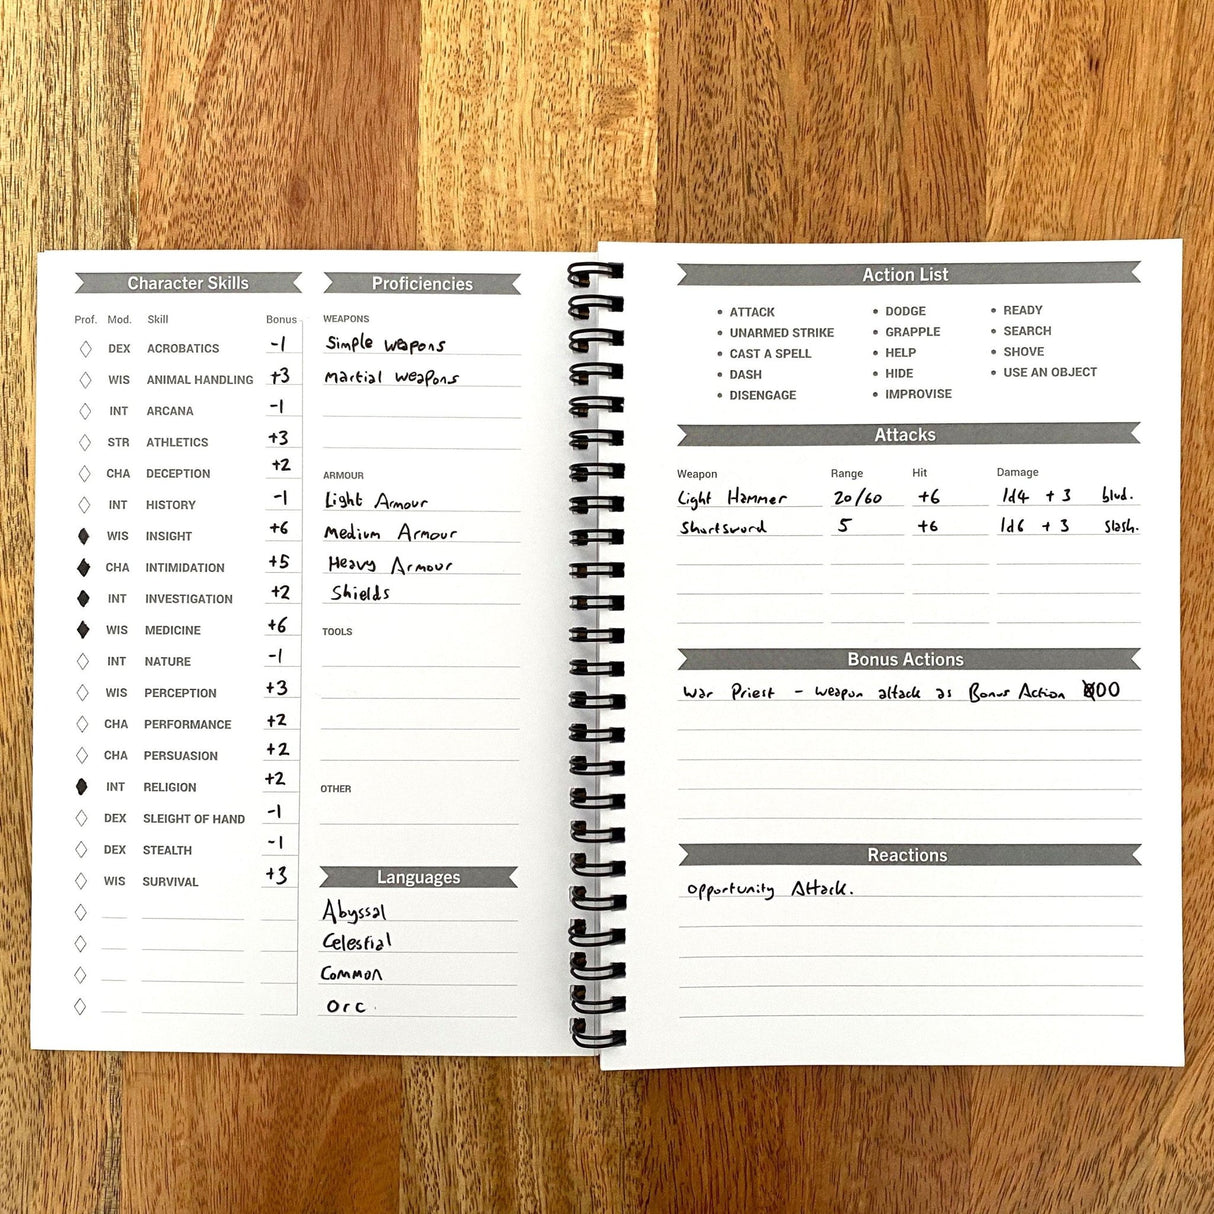 Character Skills
Prof. Mod. Skill Bonus
DEX ACROBATICS -1
WIS ANIMAL HANDLING +3
INT ARCANA -1
STR ATHLETICS +3
CHA DECEPTION +2
INT HISTORY -1
WIS INSIGHT +6
CHA INTIMIDATION +5
INT INVESTIGATION +2
WIS MEDICINE +6
INT NATURE -1
WIS PERCEPTION +3
CHA PERFORMANCE +2
CHA PERSUASION +2
INT RELIGION +2
DEX SLEIGHT OF HAND -1
DEX STEALTH -1
WIS SURVIVAL +3
Proficiencies
WEAPONS
Simple weapons
Martial weapons
ARMOUR
Light Armour
Medium Armour
Heavy Armour
Shields
TOOLS
OTHER
Languages
Abyssal
Celestial
Common
Orc
Action List
• ATTACK
• UNARMED STRIKE
• CAST A SPELL
• DASH
• DISENGAGE
• DODGE
• GRAPPLE
• HELP
• HIDE
• IMPROVISE
• READY
• SEARCH
• SHOVE
• USE AN OBJECT
Attacks
Weapon Range Hit Damage
Light Hammer 20/60 +6 1d4 + 3 blud.
Shortsword 5 +6 1d6 + 3 slash.
Bonus Actions
War Priest - weapon attack as Bonus Action
Reactions
Opportunity Attack.